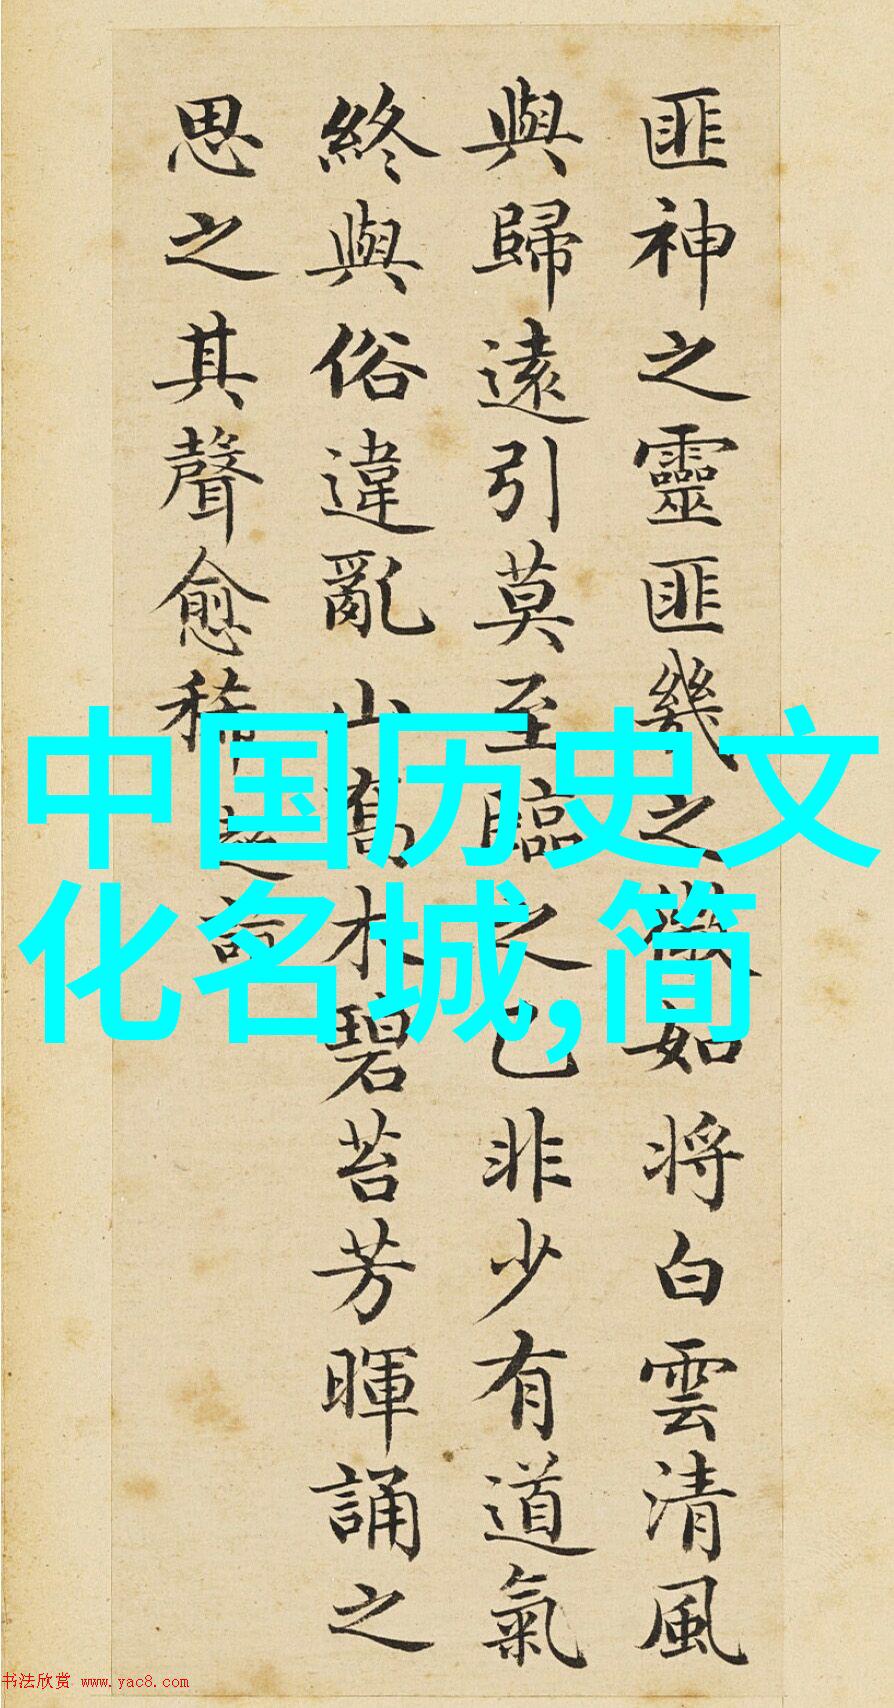 匪神之靈匪幾之微如將白雲清風
與歸遠引莫至臨之已非少有道氣
終與俗違亂山喬木碧苔芳暉誦之
思之其聲愈稀
中国历史文
化名城,简
书法欣赏 www.yac8.com